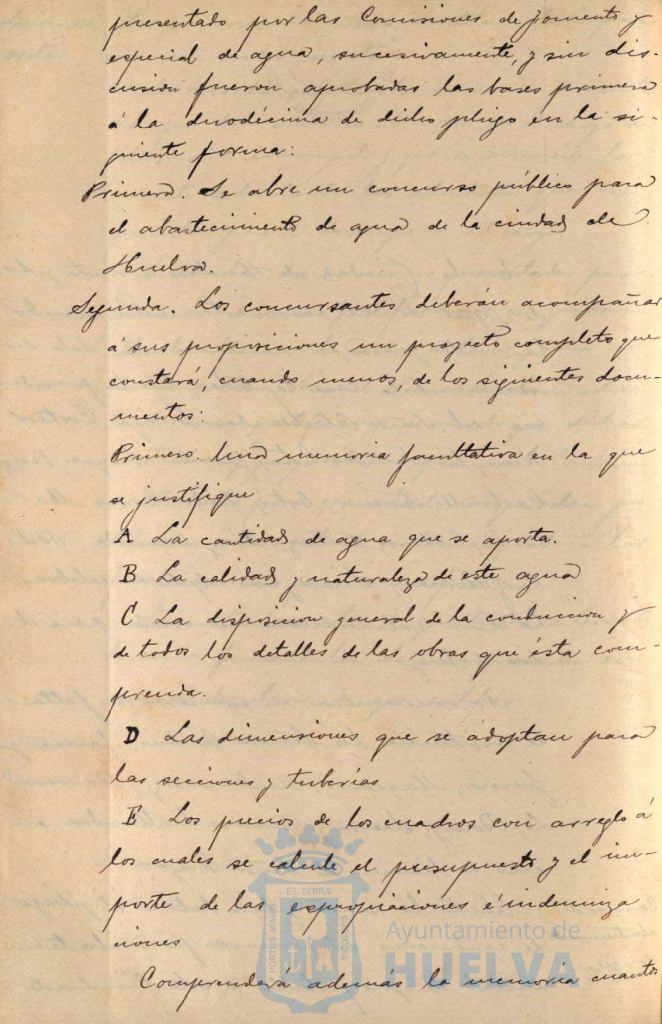 presentado por las Comisiones de fomento y
especial de agua, sucesivamente, y sin dis-
cusión fueron aprobadas las bases primera
á la duodécima de dicho pliego en la si-
guiente forma:
Primera. Se abre un concurso público para
el abastecimiento de agua de la ciudad de
Huelva.
Segunda. Los concursantes deberán acompañar
á sus proposiciones un proyecto completo que
constará, cuando menos, de los siguientes docu-
mentos:
Primero. Una memoria facultativa en la que
se justifique
A La cantidad de agua que se aporta.
B La calidad y naturaleza de este agua
C La disposicion general de la conduccion y
de todos los detalles de las obras que ésta com-
prenda.
D Las dimensiones que se adoptan para
las secciones y tuberías
E Los precios de los cuadros con arreglo á
los cuales se calcule el presupuesto y el im-
porte de las espropiaciones é indemniza
ciones
Comprenderá además la memoria cuantos
ET TERRÆ
PORTUS MARIS
CUSTODIA
Ayuntamiento de
HUELVA